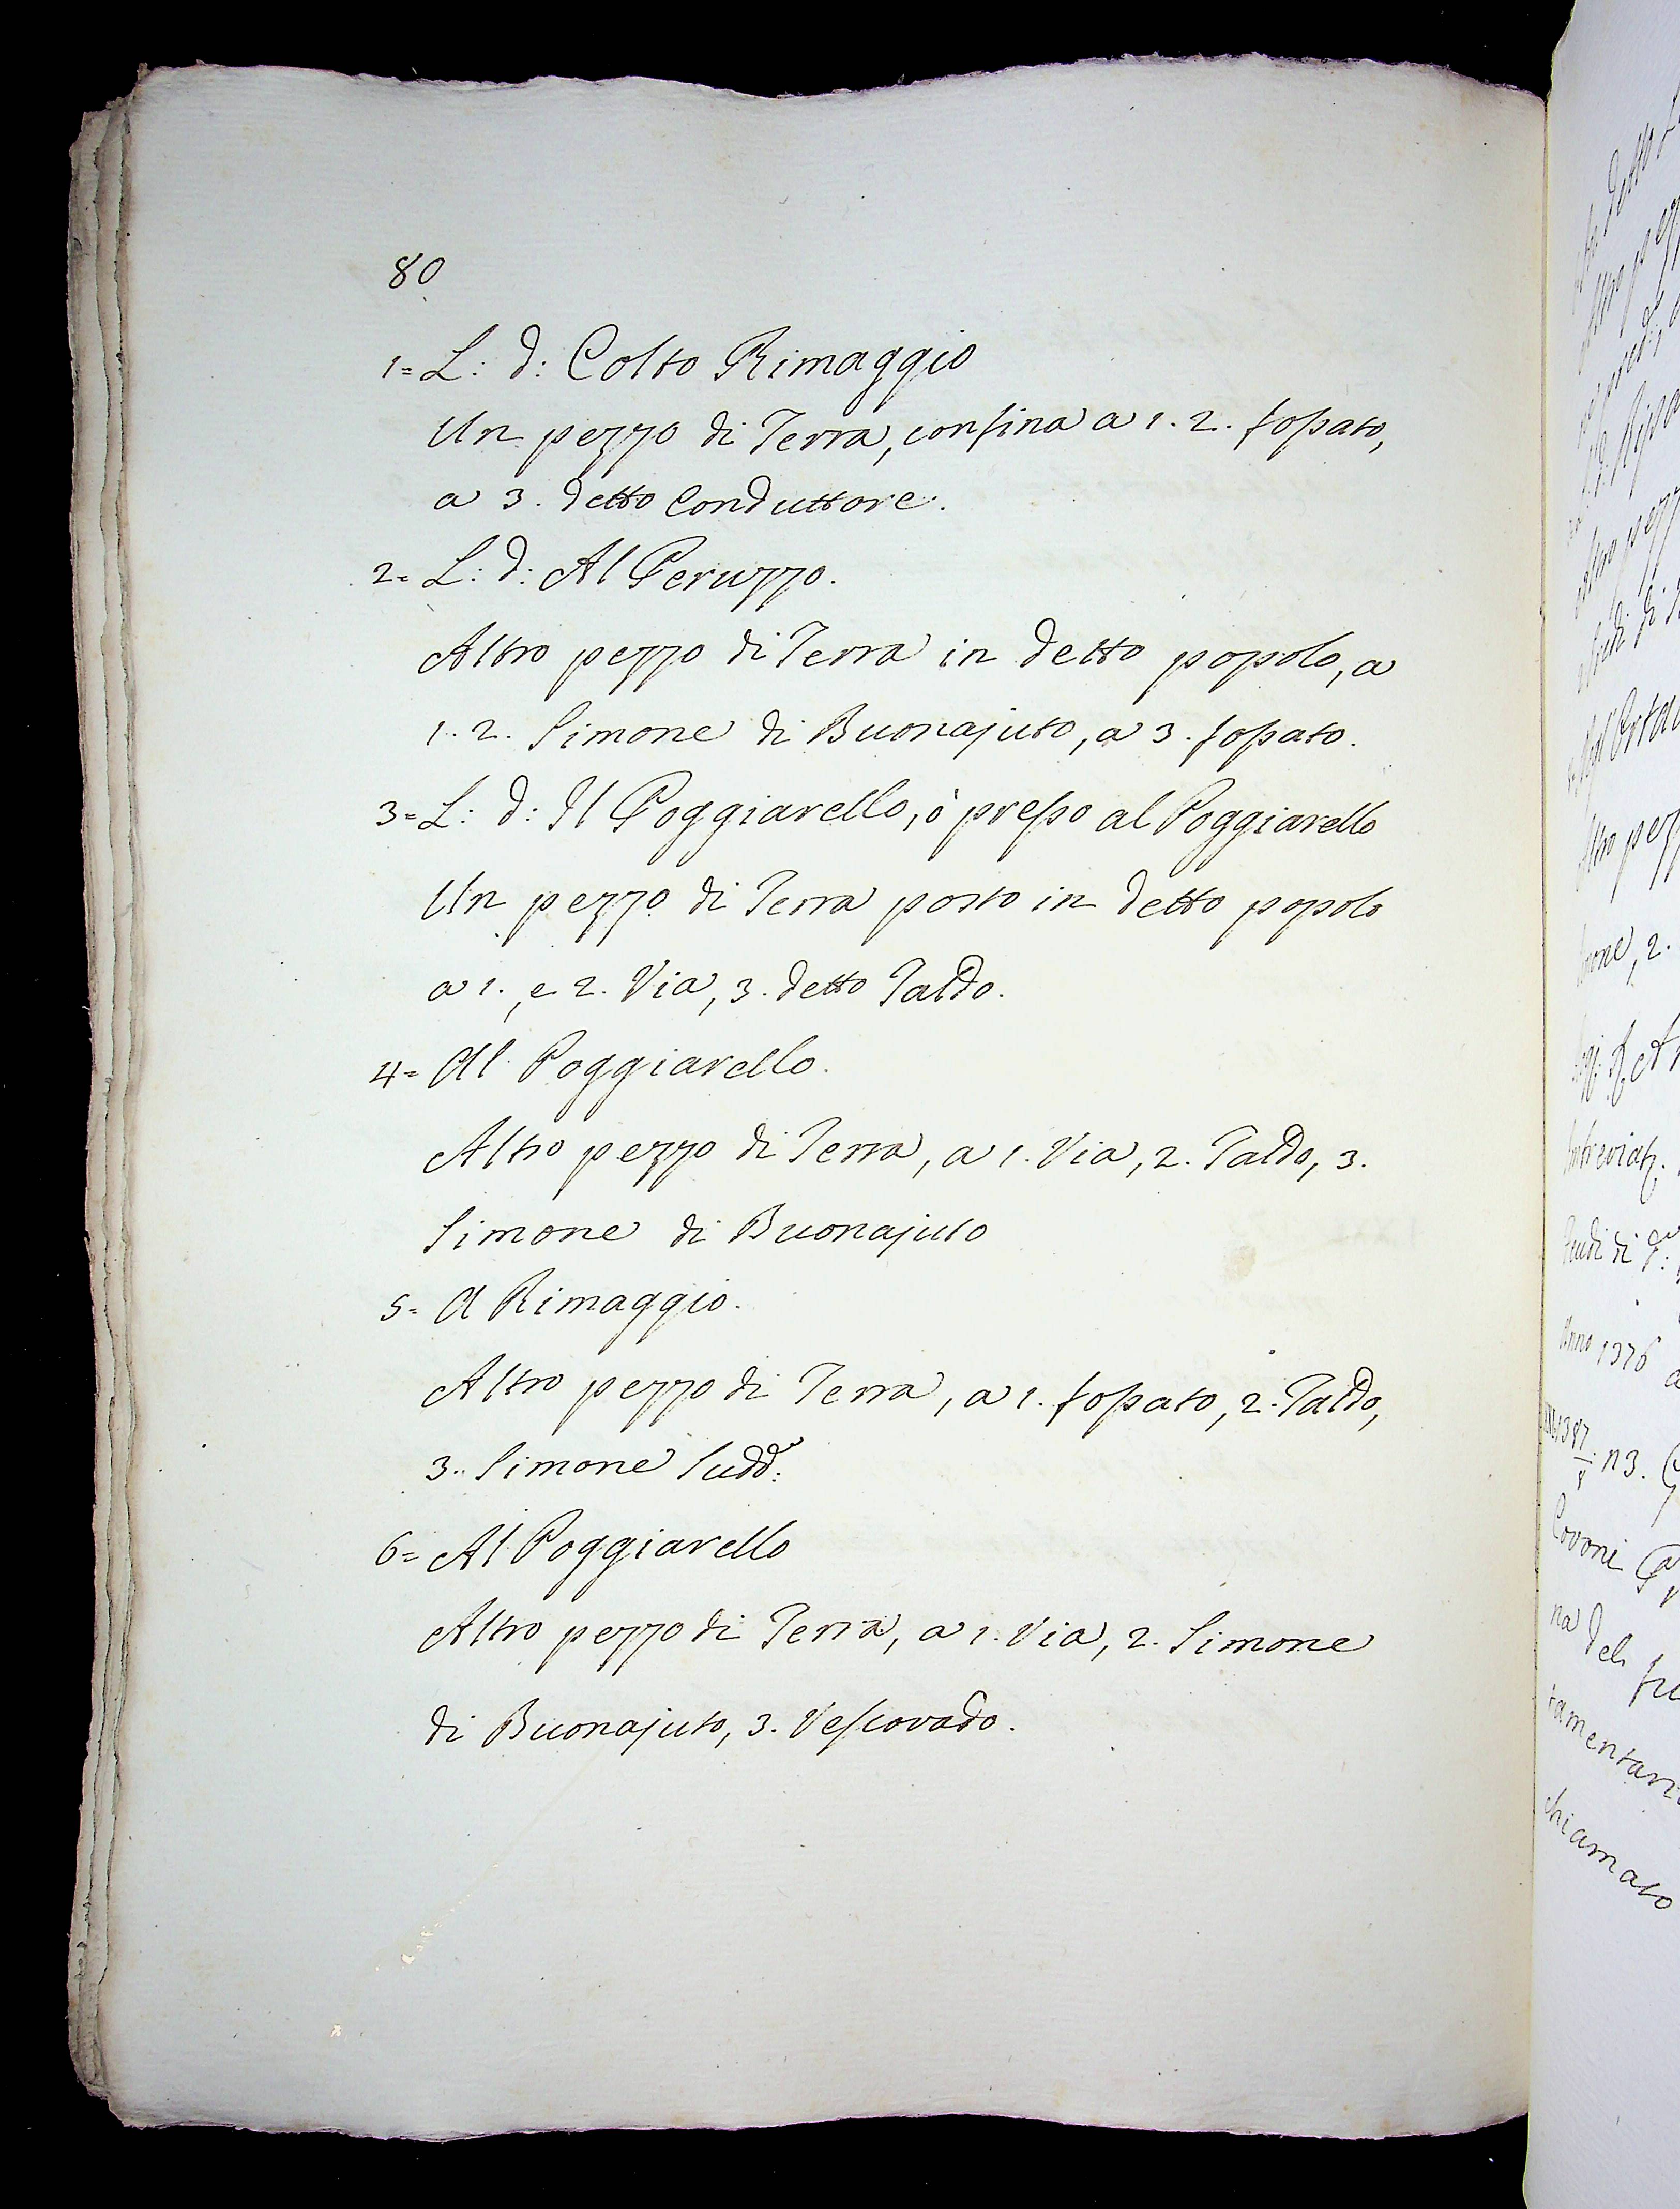 80
1= L: d: Colto Rimaggio
Un pezzo di Terra, confina a 1. 2. fossato,
a 3. detto Conduttore.
2= L: d: Al Peruzzo.
Altro pezzo di Terra in detto popolo, a
1. 2. Simone di Buonajuto, a 3. fossato.
3= L: d: Il Poggiarello, ò presso al Poggiarello
Un pezzo di Terra posto in detto popolo
a 1., e 2. Via, 3. detto Taldo.
4= Al Poggiarello.
Altro pezzo di Terra, a 1. Via, 2. Taldo, 3.
Simone di Buonajuto
5= A Rimaggio.
Altro pezzo di Terra, a 1. fossato, 2. Taldo,
3. Simone Sudd:
6= Al Poggiarello
Altro pezzo di Terra, a 1. Via, 2. Simone
di Buonajuto, 3. Vescovado.
detto
Altro pez
mone, 2.
Anno 1376
n3.
Covoni
na del
chiamato